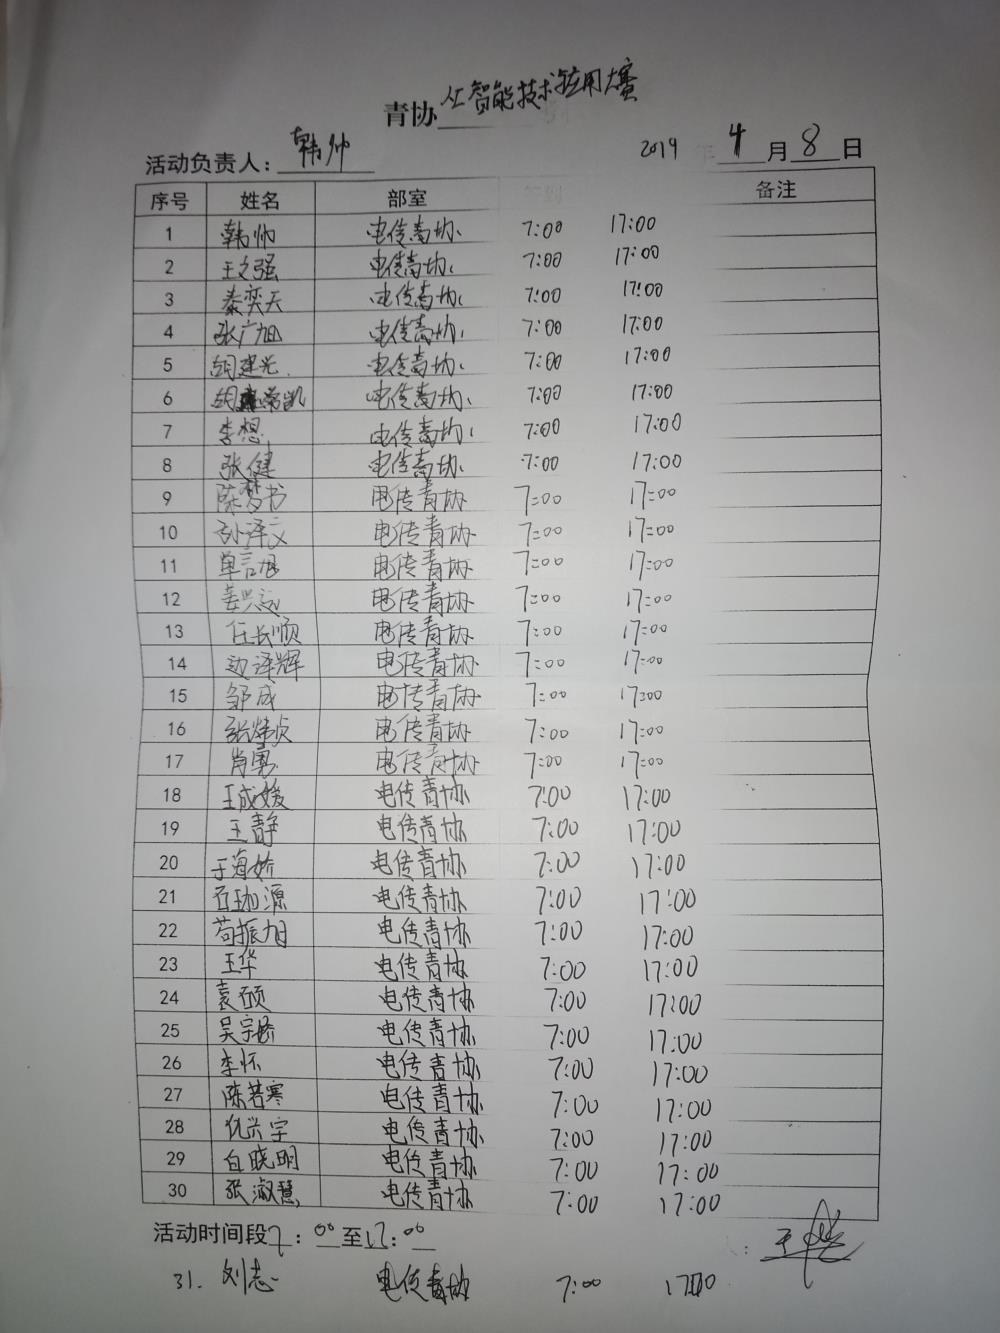 青协人智能技术应用大赛
活动负责人：韩帅 2019年4月8日
序号 姓名 部室 签到 备注
1 韩帅 电传青协 7:00 17:00
2 王文强 电传青协 7:00 17:00
3 秦奕天 电传青协 7:00 17:00
4 张广旭 电传青协 7:00 17:00
5 胡建光 电传青协 7:00 17:00
6 胡常凯 电传青协 7:00 17:00
7 李想 电传青协 7:00 17:00
8 张健 电传青协 7:00 17:00
9 陈梦书 电传青协 7:00 17:00
10 孙泽文 电传青协 7:00 17:00
11 单言旭 电传青协 7:00 17:00
12 姜兴远 电传青协 7:00 17:00
13 任长顺 电传青协 7:00 17:00
14 边泽辉 电传青协 7:00 17:00
15 邹成 电传青协 7:00 17:00
16 张炜贞 电传青协 7:00 17:00
17 肖勇 电传青协 7:00 17:00
18 王成媛 电传青协 7:00 17:00
19 王静 电传青协 7:00 17:00
20 于海娇 电传青协 7:00 17:00
21 石珈源 电传青协 7:00 17:00
22 苟振旭 电传青协 7:00 17:00
23 王华 电传青协 7:00 17:00
24 袁硕 电传青协 7:00 17:00
25 吴宇桥 电传青协 7:00 17:00
26 李怀 电传青协 7:00 17:00
27 陈若寒 电传青协 7:00 17:00
28 仇兴宇 电传青协 7:00 17:00
29 白晓明 电传青协 7:00 17:00
30 张淑慧 电传青协 7:00 17:00
活动时间段7：00至17：00
31. 刘志 电传青协 7:00 17:00